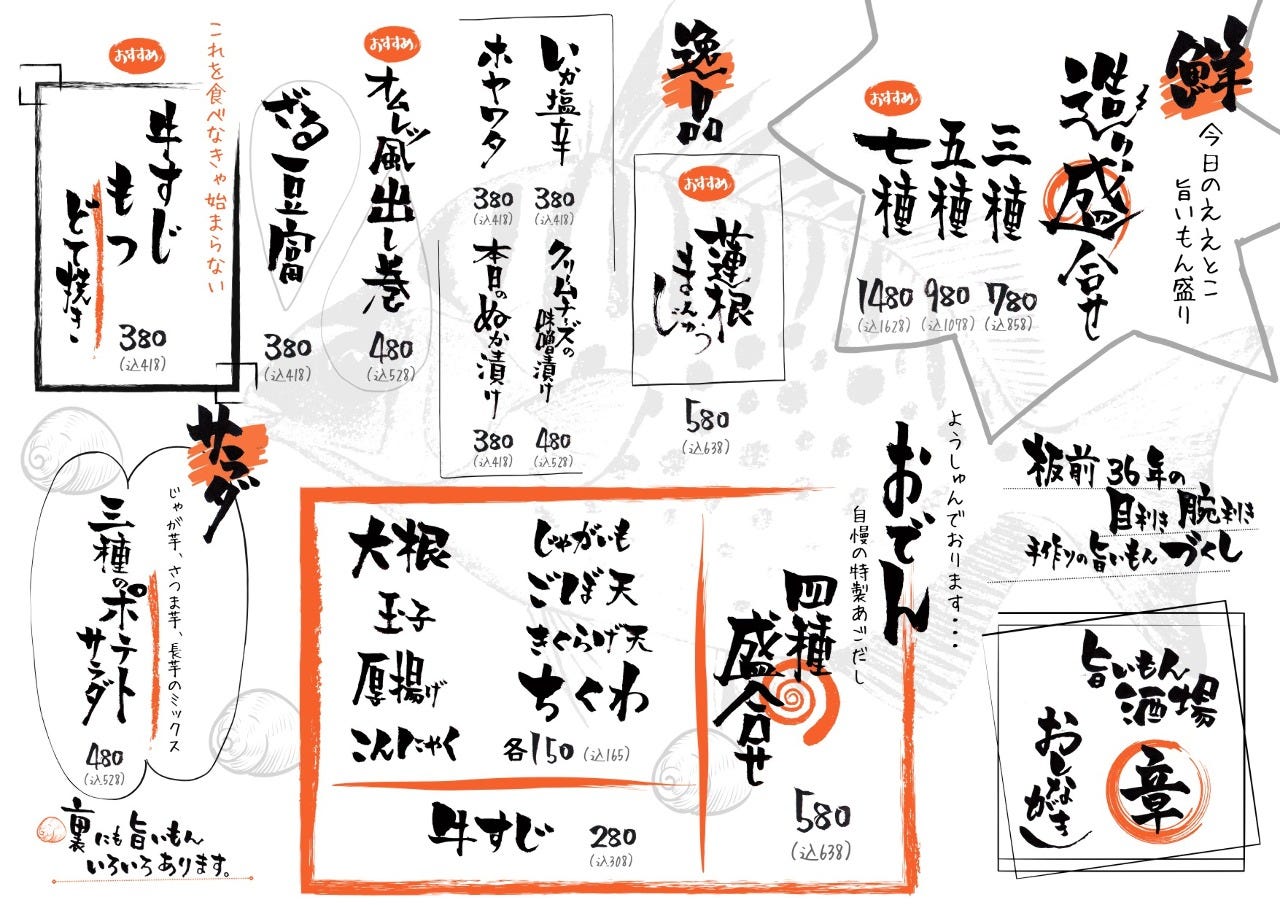 鮮
今日のええとこ
旨いもん盛り
造り盛合せ
おすすめ
三種
780
(込858)
五種
980
(込1078)
七種
1480
(込1628)
逸品
おすすめ
蓮根
まんじゅう
580
(込638)
いか塩辛
380
(込418)
ホヤワタ
380
(込418)
クリームチーズの
味噌漬け
480
(込528)
本日のぬか漬け
380
(込418)
おすすめ
オムレツ風出し巻
480
(込528)
ざる豆富
380
(込418)
これを食べなきゃ始まらない
おすすめ
牛すじ
もつ
どて焼き
380
(込418)
板前36年の
目利き腕利き
手作りの旨いもんづくし
旨いもん
酒場
章
おしながき
ようしゅんでおります…
おでん
自慢の特製あごだし
四種
盛合せ
580
(込638)
じゃがいも
ごぼ天
きくらげ天
ちくわ
大根
玉子
厚揚げ
こんにゃく
各150 (込165)
牛すじ 280
(込308)
サラダ
じゃが芋、さつま芋、長芋のミックス
三種のポテト
サラダ
480
(込528)
裏にも旨いもん
いろいろあります。